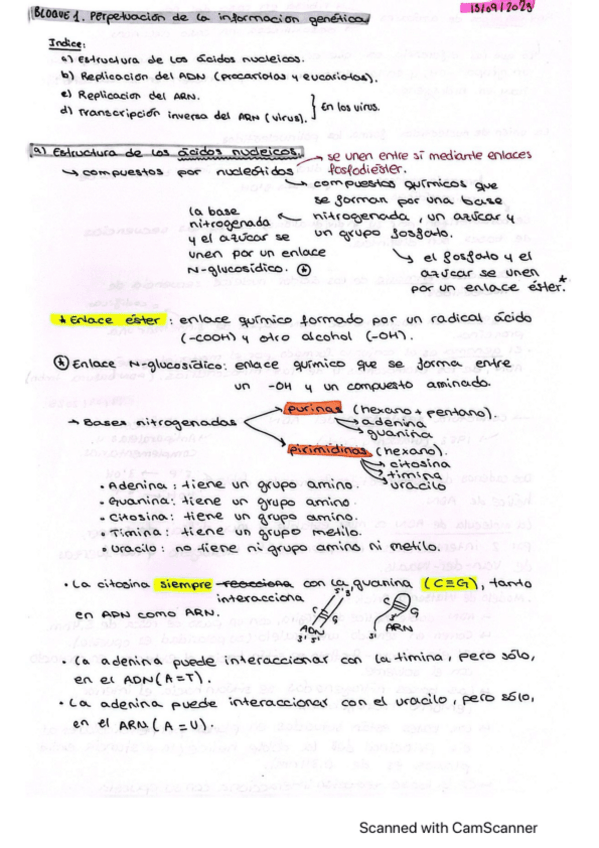 BLOQUE 1. Perpetuación de la información genética
13/09/2023
Indice:
a) Estructura de los ácidos nucleicos.
b) Replicación del ADN (procariotas y eucariotas).
c) Replicación del ARN.
d) Transcripción inversa del ARN (virus).
en los virus.
a) Estructura de los ácidos nucleicos.
→ compuestos por nucleótidos
→ se unen entre sí mediante enlaces
fosfodiéster.
→ compuestos químicos que
se forman por una base
nitrogenada, un azúcar y
un grupo fosfato.
la base
nitrogenada
y el azúcar se
unen por un enlace
N-glucosídico.
→ el fosfato y el
azúcar se unen
por un enlace éster.*
* Enlace éster: enlace químico formado por un radical ácido
(-COOH) y otro alcohol (-OH).
Enlace N-glucosídico: enlace químico que se forma entre
un -OH y un compuesto aminado.
→ Bases nitrogenadas
purinas (hexano + pentano).
→ adenina
→ guanina
pirimidinas (hexano).
→ citosina
→ timina
→ uracilo
• Adenina: tiene un grupo amino.
• Guanina: tiene un grupo amino.
• Citosina: tiene un grupo amino.
• Timina: tiene un grupo metilo.
• Uracilo: no tiene ni grupo amino ni metilo.
• La citosina siempre reacciona con la guanina (C≡G), tanto
interacciona
en ADN como ARN.
5' 3'
C
G
ADN
3' 5'
C
G
ARN
• La adenina puede interaccionar con la timina, pero sólo,
en el ADN (A=T).
• La adenina puede interaccionar con el uracilo, pero sólo,
en el ARN (A=U).
Scanned with CamScanner